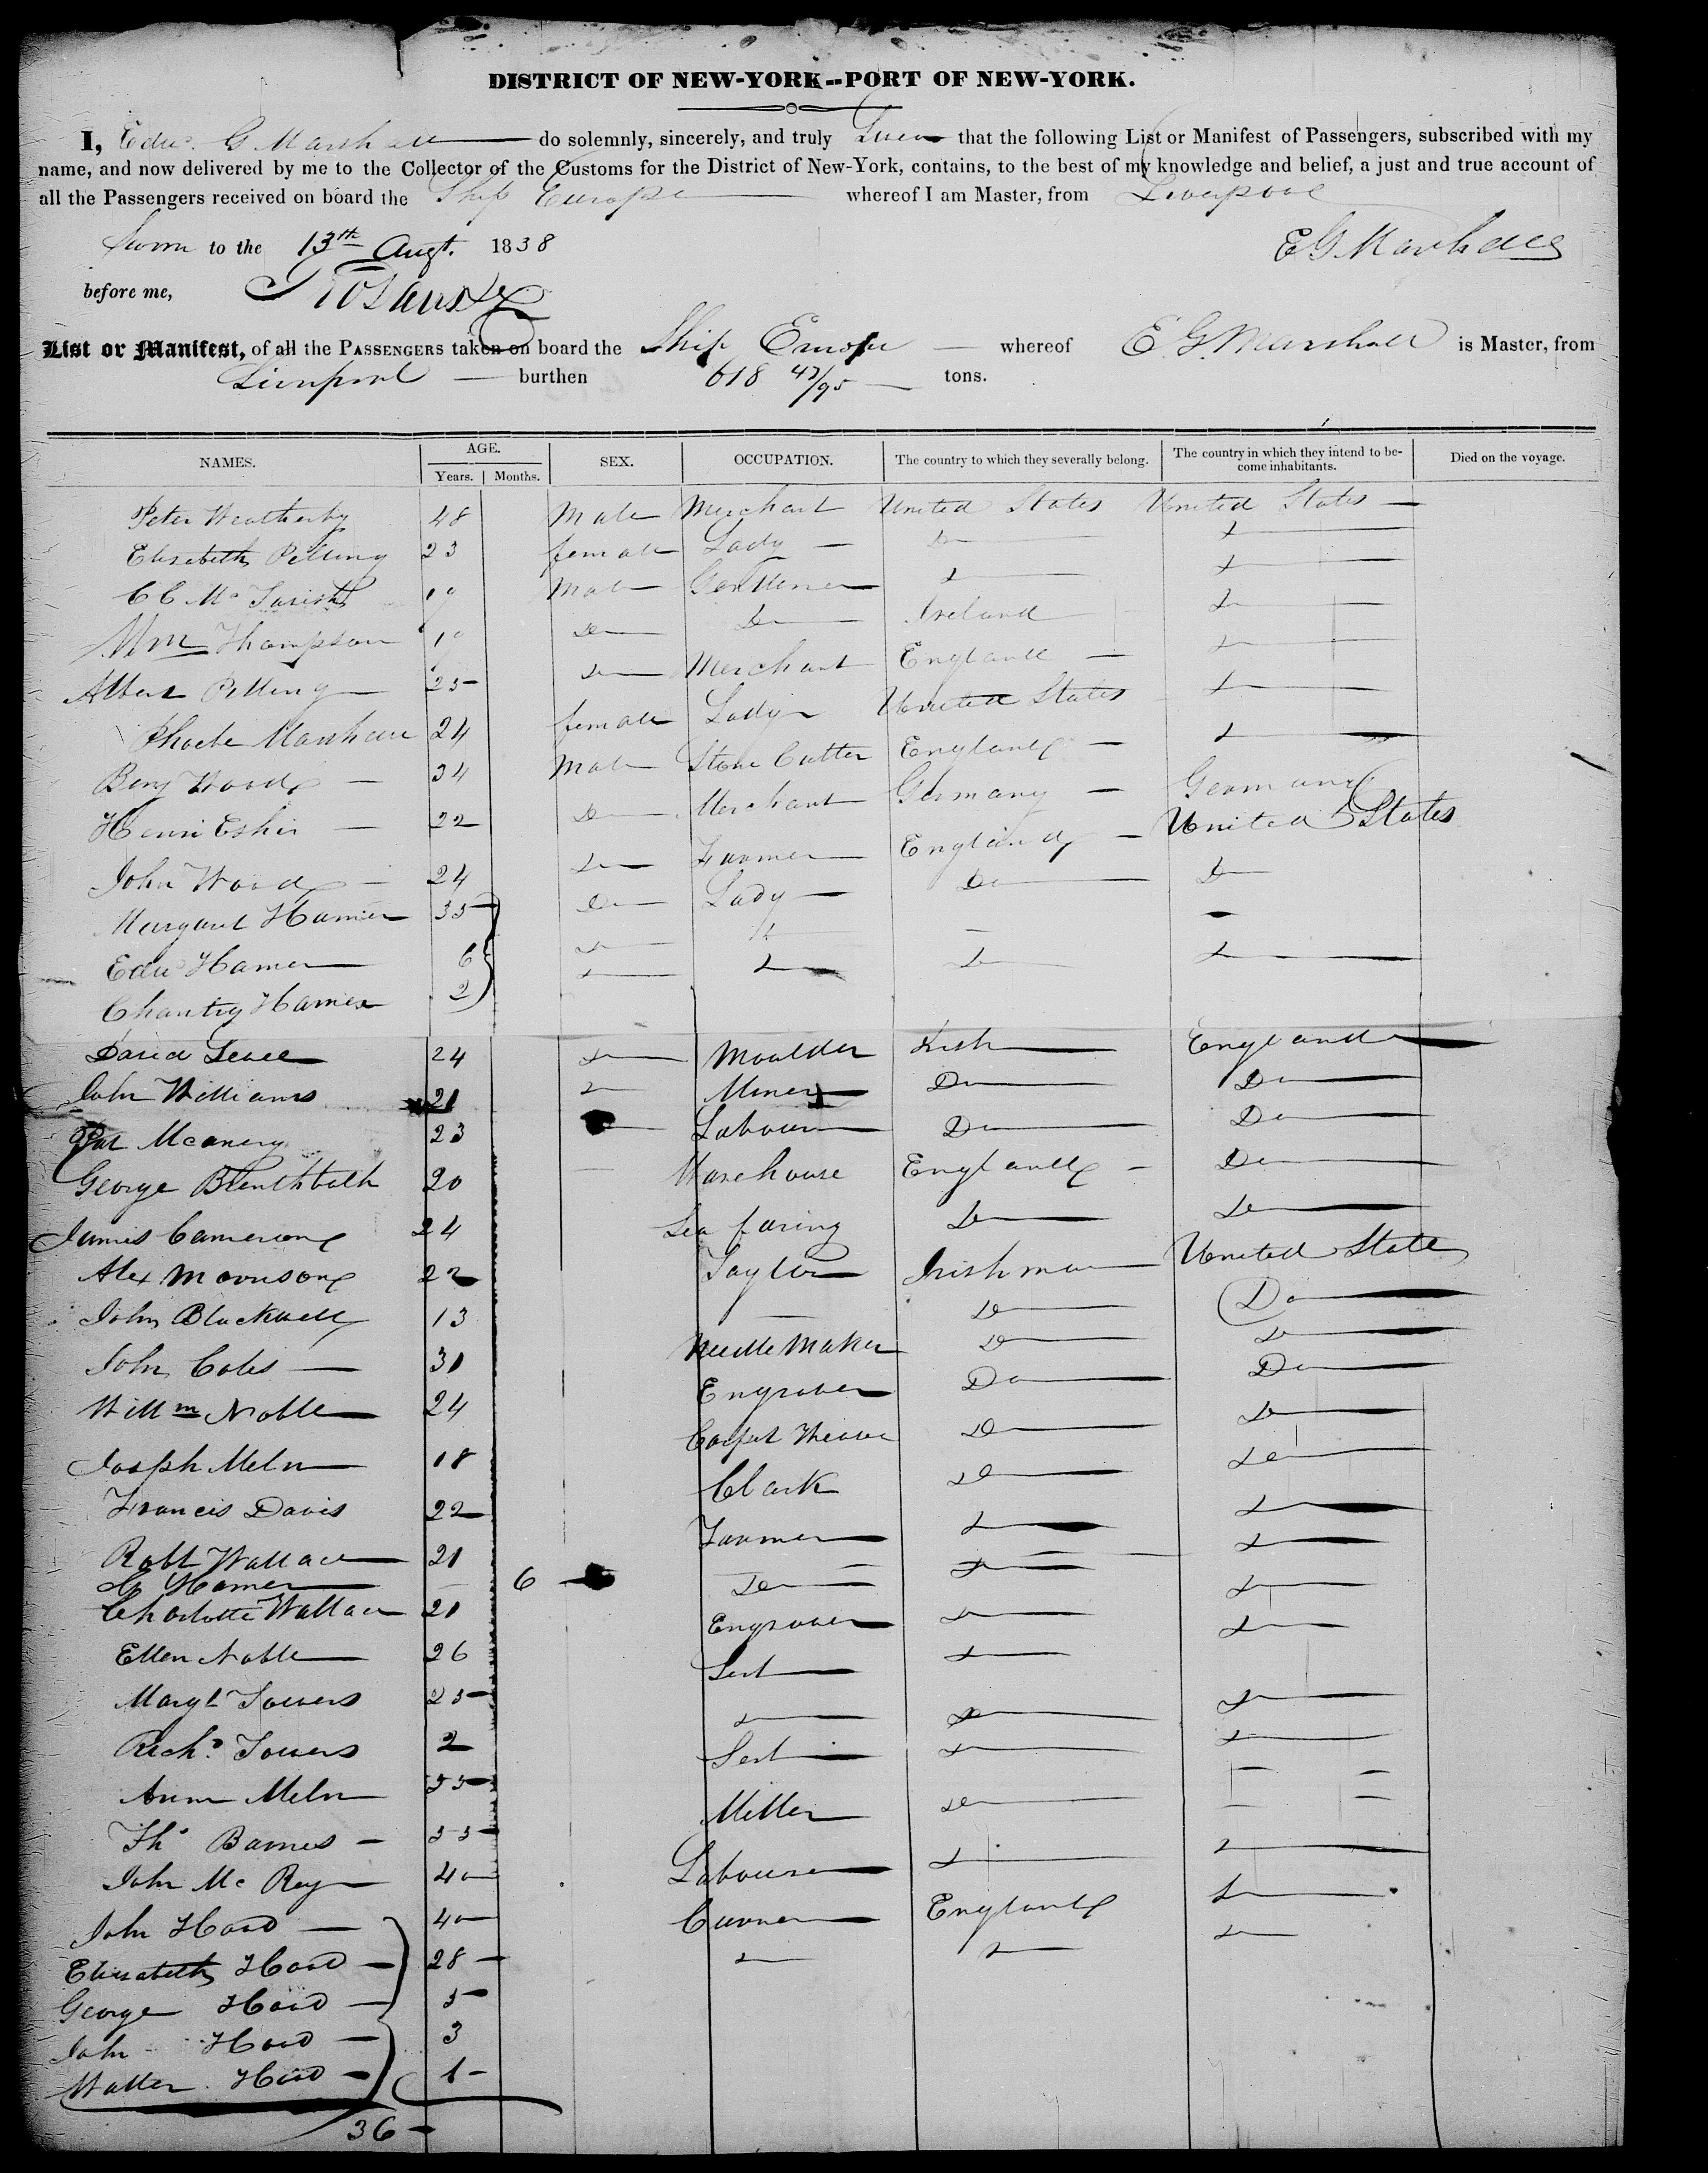 DISTRICT OF NEW-YORK--PORT OF NEW-YORK.
I, Edw. G Marshall do solemnly, sincerely, and truly Swear that the following List or Manifest of Passengers, subscribed with my
name, and now delivered by me to the Collector of the Customs for the District of New-York, contains, to the best of my knowledge and belief, a just and true account of
all the Passengers received on board the Ship Europe whereof I am Master, from Liverpool
Sworn to the 13th Augt. 1838 E G Marshall
before me,
List or Manifest, of all the PASSENGERS taken on board the Ship Europe whereof E. G. Marshall is Master, from
Liverpool burthen 618 47/95 tons.
NAMES. AGE. SEX. OCCUPATION. The country to which they severally belong. The country in which they intend to become inhabitants. Died on the voyage.
Years. Months.
Peter Weatherby 48 Male Merchant United States United States
Elizabeth Pilling 23 female Lady Do Do
C C Mc 19 Male Gentleman Do Do
Wm Thompson 19 Do Do Ireland Do
Albert Pilling 25 Do Merchant England Do
Phoebe Marshall 24 female Lady United States Do
Benj Wood 34 Male Stone Cutter England Do
Henri Esher 22 Do Merchant Germany Germany
John Wood 24 Do Farmer England United States
Margaret Hamer 35 Do Lady Do Do
Edw Hamer 6 Do Do
Chantry Hamer 2 Do Do Do Do
David 24 Do Moulder Irish England
John Williams 21 Do Miner Do Do
Pat Mcanery 23 Labourer Do Do
George 20 Warehouse England Do
James Cameron 24 Sea faring Do Do
Alex Morrison 22 Taylor Irishman United State
John Blackwell 13 Do Do
John Coles 31 Needle Maker Do Do
Willm Noble 24 Engraver Do Do
Joseph Meln 18 Carpet Weaver Do Do
Francis Davis 22 Clark Do Do
Robt Wallace 21 Farmer Do Do
Hamer 6 Do Do Do
Charlotte Wallace 21 Engraver Do Do
Ellen Noble 26 Sert Do Do
Margt Towers 25 Do Do Do
Richd Towers 2 Sert Do Do
Ann Meln 55
Ths Barnes 35 Miller Do
John Mc Ray 40 Labourer Do Do
John Hood 40 Currier England Do
Elizabeth Hood 28 Do Do Do
George Hood 5
John Hood 3
Walter Hood 1
36